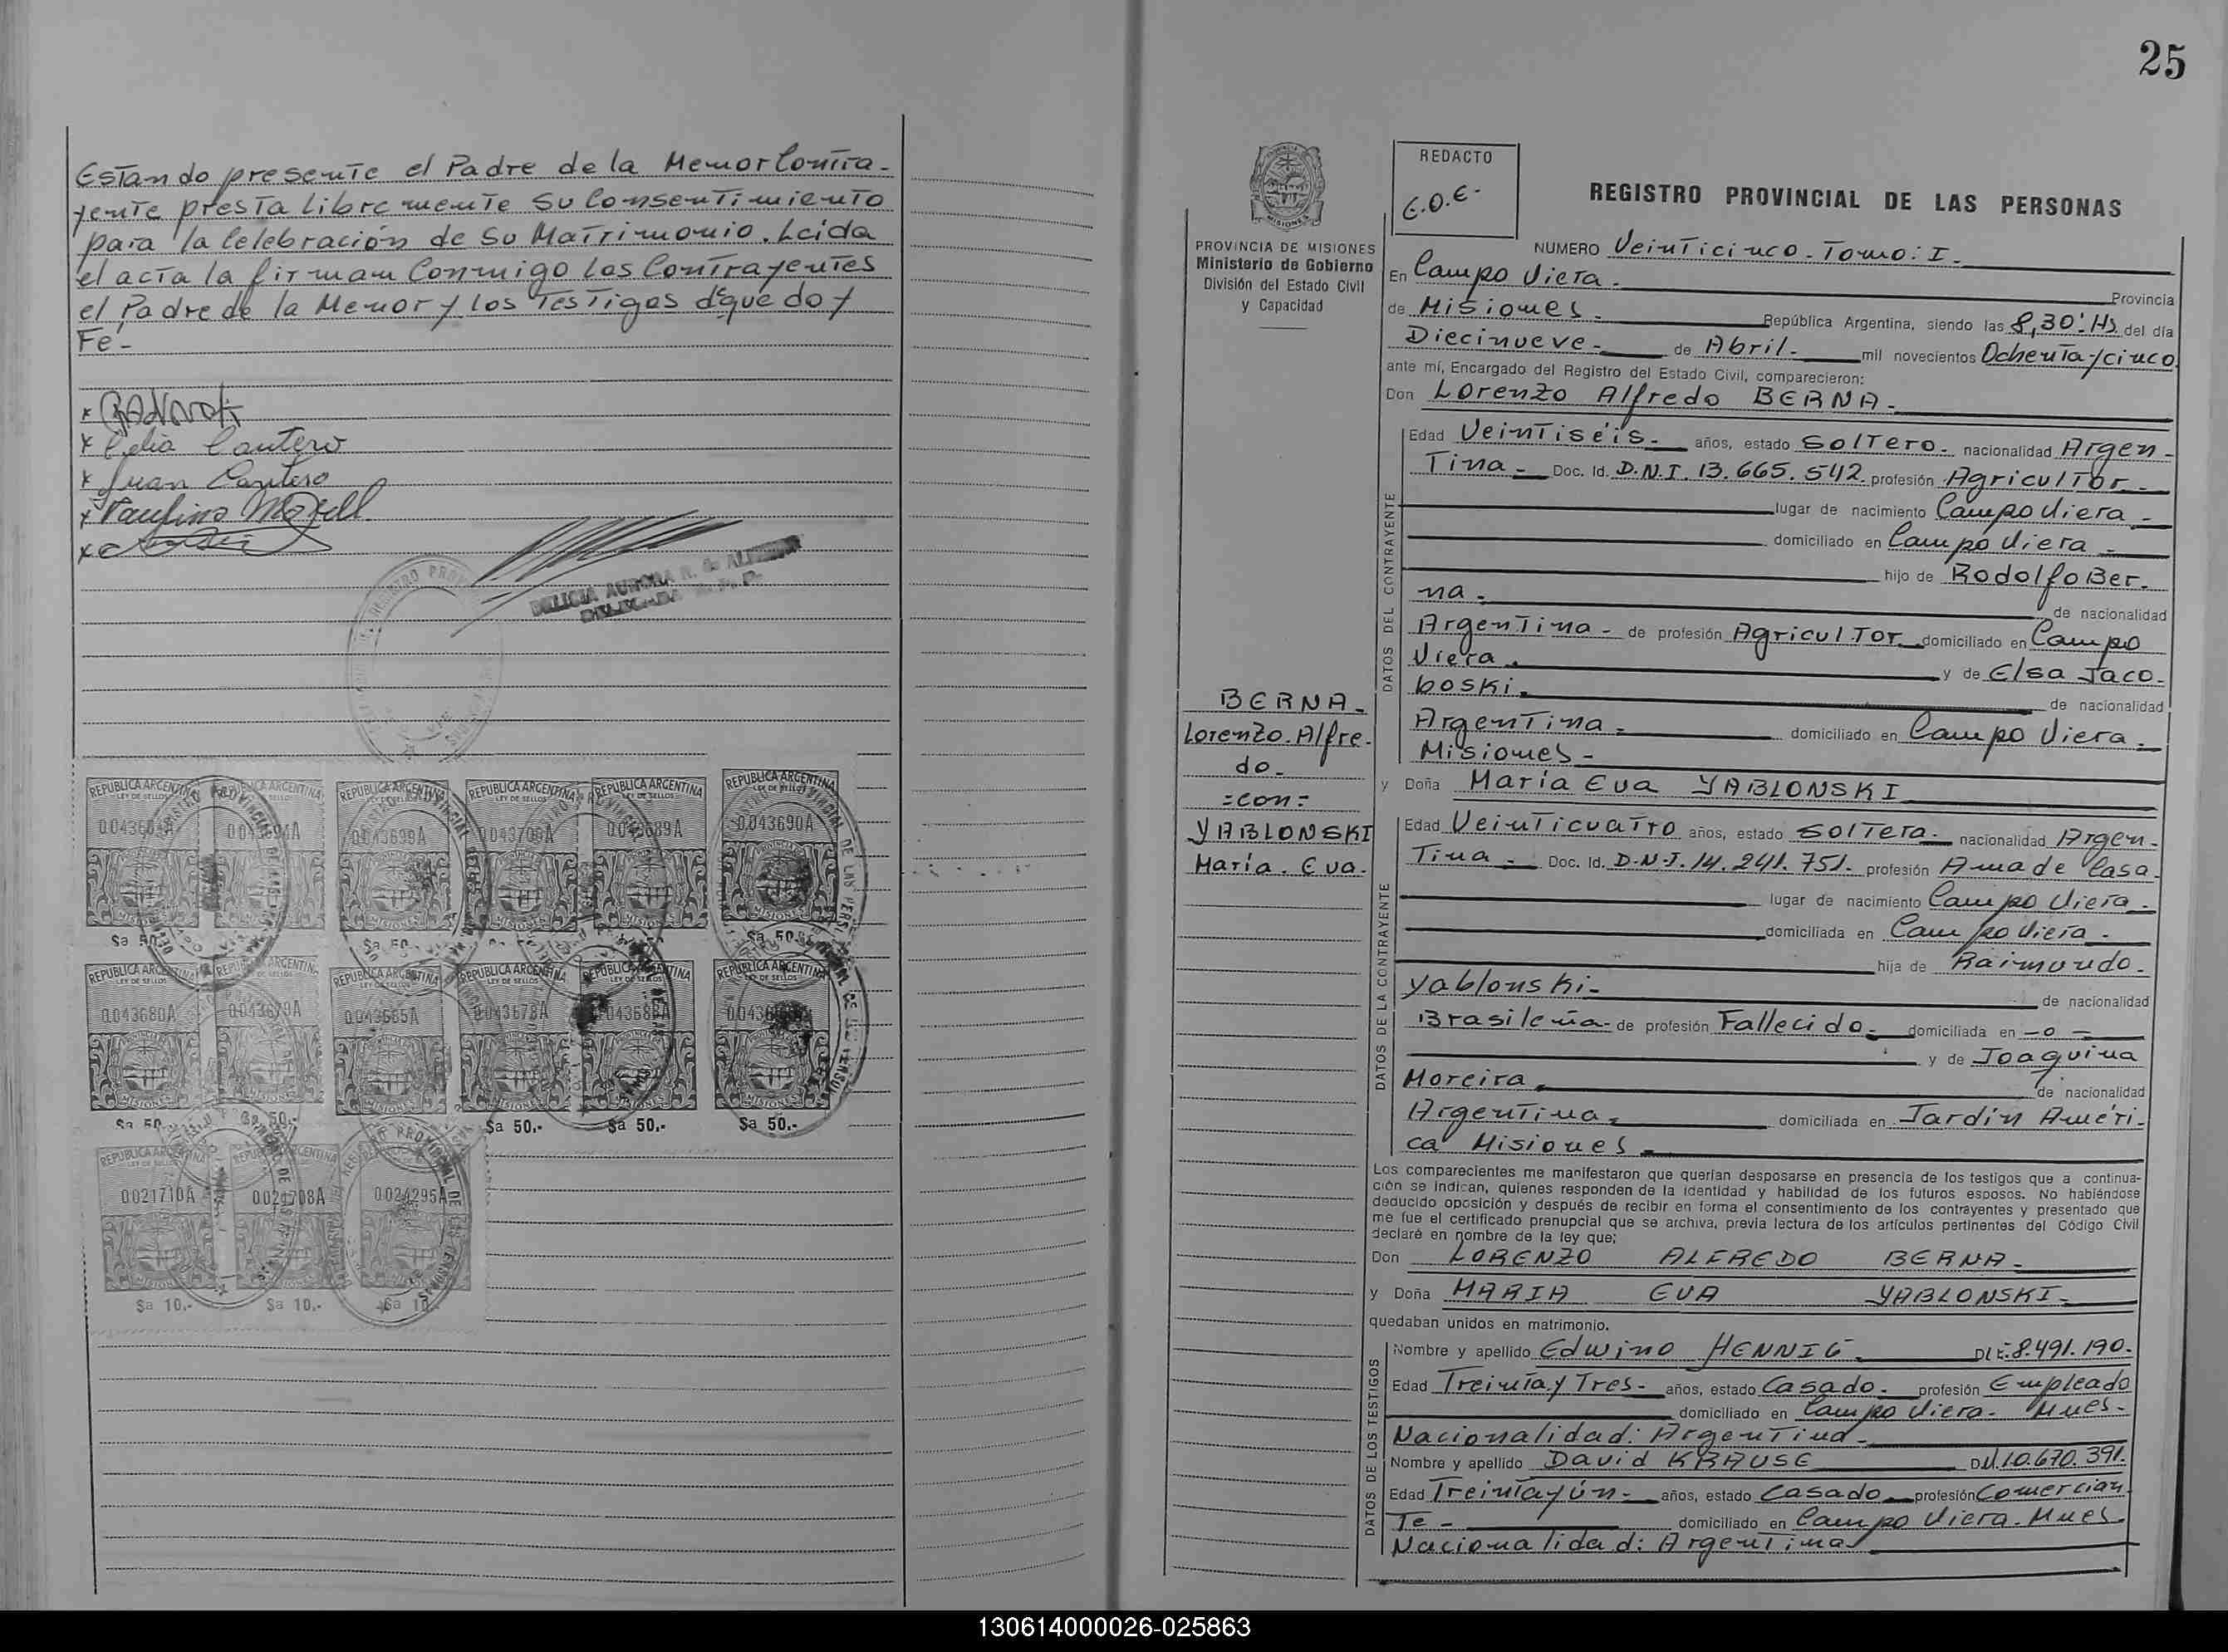 Estando presente el Padre de la Menor Contra-
yente presta libremente su Consentimiento
para la Celebración de su Matrimonio. Leida
el acta la firman Conmigo los Contrayentes
el Padre de la Menor y los Testigos de que doy
Fe-
x Celia Cantero
x Juan Cantero
x Paulino
DELICIA AURORA R. de
DELEGADA
REPUBLICA ARGENTINA
LEY DE SELLOS
0043699A
0043689A
0043690A
MISIONES
$a 50.-
0043680A
0043679A
0043685A
0043678A
$a 50.-
$a 50.-
$a 50.-
0021710A
0021708A
0024295A
$a 10.-
$a 10.-
$a 10
25
PROVINCIA DE MISIONES
Ministerio de Gobierno
División del Estado Civil
y Capacidad
REDACTO
C.O.E-
REGISTRO PROVINCIAL DE LAS PERSONAS
NUMERO Veinticinco. Tomo: I.
En Campo Viera. Provincia
de Misiones. República Argentina, siendo las 8,30: Hs del día
Diecinueve- de Abril- mil novecientos Ochenta y cinco
ante mí, Encargado del Registro del Estado Civil, comparecieron:
Don Lorenzo Alfredo BERNA-
DATOS DEL CONTRAYENTE
Edad Veintiséis- años, estado Soltero- nacionalidad Argen-
Tina- Doc. Id. D.N.I. 13.665.542. profesión Agricultor-
lugar de nacimiento Campo Viera-
domiciliado en Campo Viera-
hijo de Rodolfo Ber-
na- de nacionalidad
Argentina- de profesión Agricultor domiciliado en Campo
Viera. y de Elsa Jaco-
boski. de nacionalidad
Argentina- domiciliado en Campo Viera-
Misiones-
BERNA-
Lorenzo. Alfre-
do-
=con=
YABLONSKI
María. Eva.
y Doña María Eva YABLONSKI
DATOS DE LA CONTRAYENTE
Edad Veinticuatro años, estado Soltera- nacionalidad Argen-
Tina- Doc. Id. D.N.I. 14.241.751. profesión Ama de Casa.
lugar de nacimiento Campo Viera-
domiciliada en Campo Viera-
hija de Raimundo-
Yablonski- de nacionalidad
Brasileña- de profesión Fallecido- domiciliada en -o-
y de Joaquina
Moreira. de nacionalidad
Argentina- domiciliada en Jardín Améri-
ca Misiones-
Los comparecientes me manifestaron que querían desposarse en presencia de los testigos que a continua-
ción se indican, quienes responden de la identidad y habilidad de los futuros esposos. No habiéndose
deducido oposición y después de recibir en forma el consentimiento de los contrayentes y presentado que
me fue el certificado prenupcial que se archiva, previa lectura de los artículos pertinentes del Código Civil
declaré en nombre de la ley que;
Don LORENZO ALFREDO BERNA-
y Doña MARIA EVA YABLONSKI-
quedaban unidos en matrimonio.
DATOS DE LOS TESTIGOS
Nombre y apellido Edwino HENNIG- DI 8.491.190-
Edad Treinta y Tres- años, estado Casado- profesión Empleado
domiciliado en Campo Viera- Mnes-
Nacionalidad: Argentina-
Nombre y apellido David KRAUSE D.I. 10.670.391.
Edad Treinta y ún- años, estado Casado profesión Comercian
Te- domiciliado en Campo Viera. Mnes.
Nacionalidad: Argentina
130614000026-025863